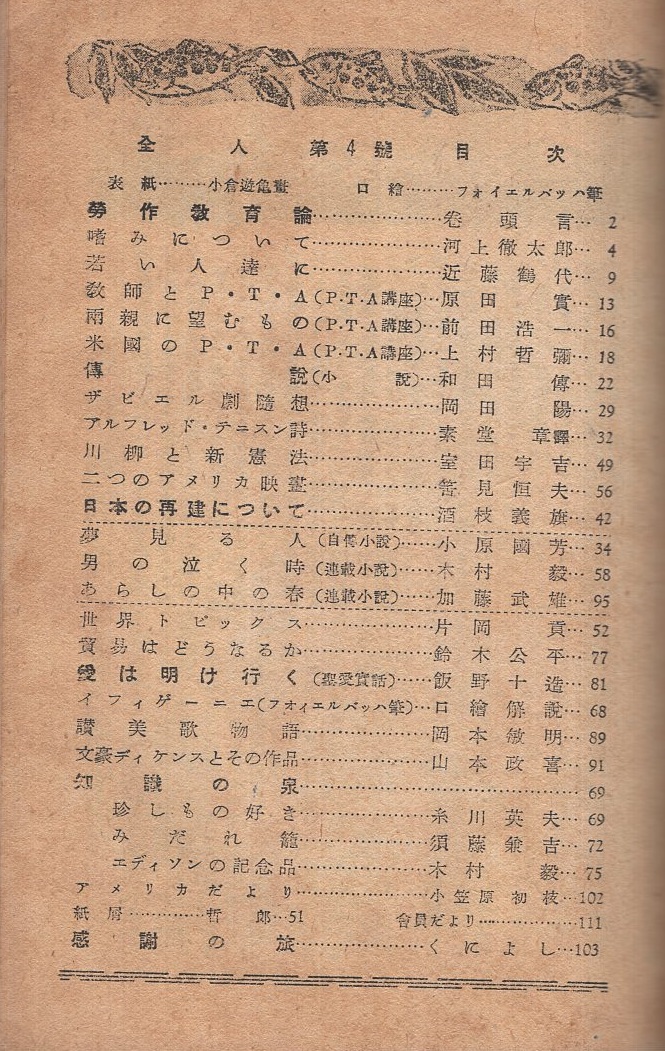 全人第4號目次
表紙………小倉遊亀畫 口繪………フォイエルバッハ筆
勞作敎育論………………卷頭言…2
嗜みについて………………河上徹太郎…4
若い人達に………………近藤鶴代…9
敎師とP・T・A(P.T.A講座)…原田實…13
兩親に望むもの(P.T.A講座)…前田浩一…16
米國のP・T・A(P.T.A講座)…上村哲彌…18
傳說(小說)…和田傳…22
ザビエル劇隨想………………岡田陽…29
アルフレッド・テニスン詩………………素堂章譯…32
川柳と新憲法………………室田宇吉…49
二つのアメリカ映畫………………筈見恒夫…56
日本の再建について………………酒枝義旗…42
夢見る人(自傳小說)……小原國芳…34
男の泣く時(連載小說)……木村毅…58
あらしの中の春(連載小說)……加藤武雄…95
世界トピックス………………片岡貢…52
貿易はどうなるか………………鈴木公平…77
愛は明け行く(聖愛實話)……飯野十造…81
イフィゲーニエ(フォイエルバッハ筆)…口繪解說…68
讃美歌物語………………岡本敏明…89
文豪ディケンスとその作品………………山本政喜…91
知識の泉………………69
珍しもの好き………………糸川英夫…69
みだれ籠………………須藤兼吉…72
エディソンの記念品………………木村毅…75
アメリカだより………………小笠原初枝…102
紙屑…………哲郎…51 會員だより………………111
感謝の旅………………くによし…103